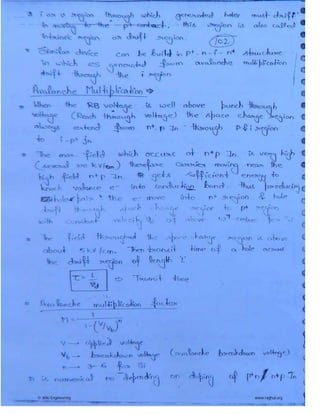 i or υ region through which generated holes must drift
in moving to the p+ contact. this region is also called
intrinsic region or drift region.
102
Similar device can be built in p+-n-i-n+ structure
in which e's generated from avalanche multiplication
drift through the i region
Avalanche Multiplication ⇒
When the RB voltage is well above punch through
voltage (Reach through voltage) the space charge region
always extend from n+-p Jn. through p & i region
to i-p+ Jn
The max. field which occurs at n+p Jn. is very high
(several 100 kV/cm) therefore carriers moving near the
high field n+p Jn. gets sufficient energy to
knock valance e- into conduction band. thus producing
pairs. the e- move into n+ region & hole
drift through space charge region to p+ region
with constant velocity
The field throughout the space charge region is above
about 5 kV/cm. Then transit time of a hole across
the drift region of length 'L'
τ = L/Vd ⇒ Transit time
Avalanche multiplication factor
M = 1/1-(V/Vb)^n
V → applied voltage
Vb → breakdown voltage (avalanche breakdown voltage)
n → 3-6 for Si
n is numerical no depending on doping of p+n / n+p Jn
© Wiki Engineering
www.raghul.org